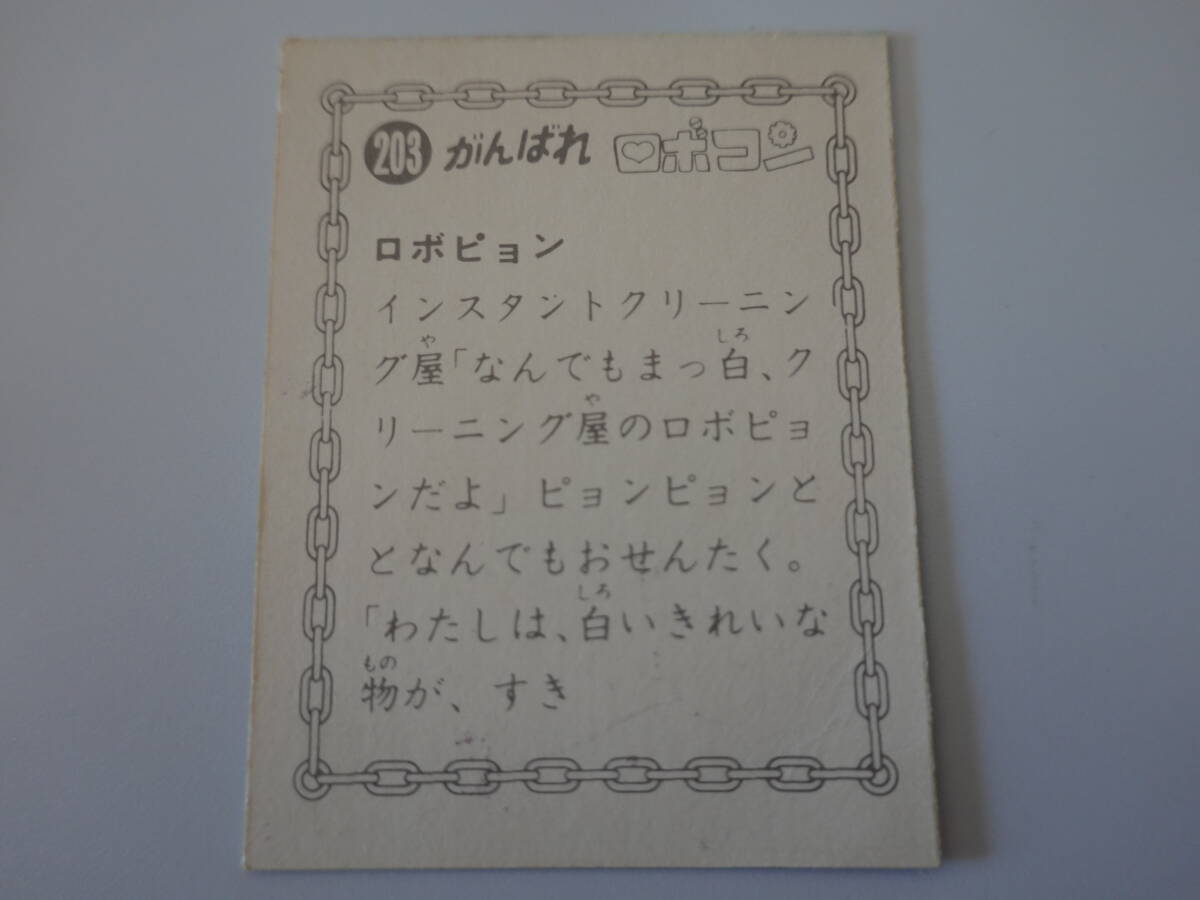 203 がんばれ ロボコン
ロボピョン
インスタントクリーニン
グ屋「なんでもまっ白、ク
リーニング屋のロボピョ
ンだよ」ピョンピョンと
となんでもおせんたく。
「わたしは、白いきれいな
物が、すき